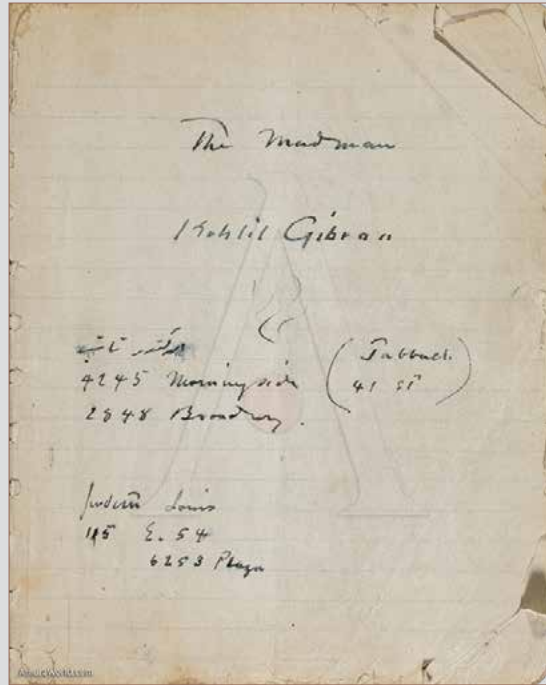 The Madman
Kahlil Gibran
4245 Morningside
2848 Broadway.
(Tabbach
41 ST)
Louis
115 E. 54
6253 Plaza